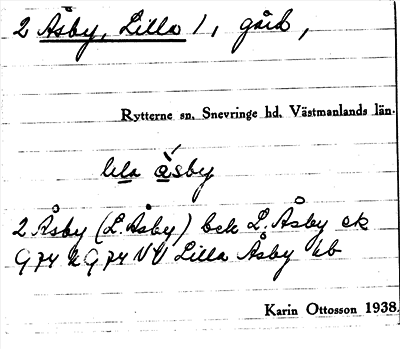 2 Åsby, Lilla /, gård,
Rytterne sn. Snevringe hd. Västmanlands län.
lila åsby
2 Åsby (L. Åsby) bek L. Åsby ek
G 74 NV Lilla Åsby kb
Karin Ottosson 1938.